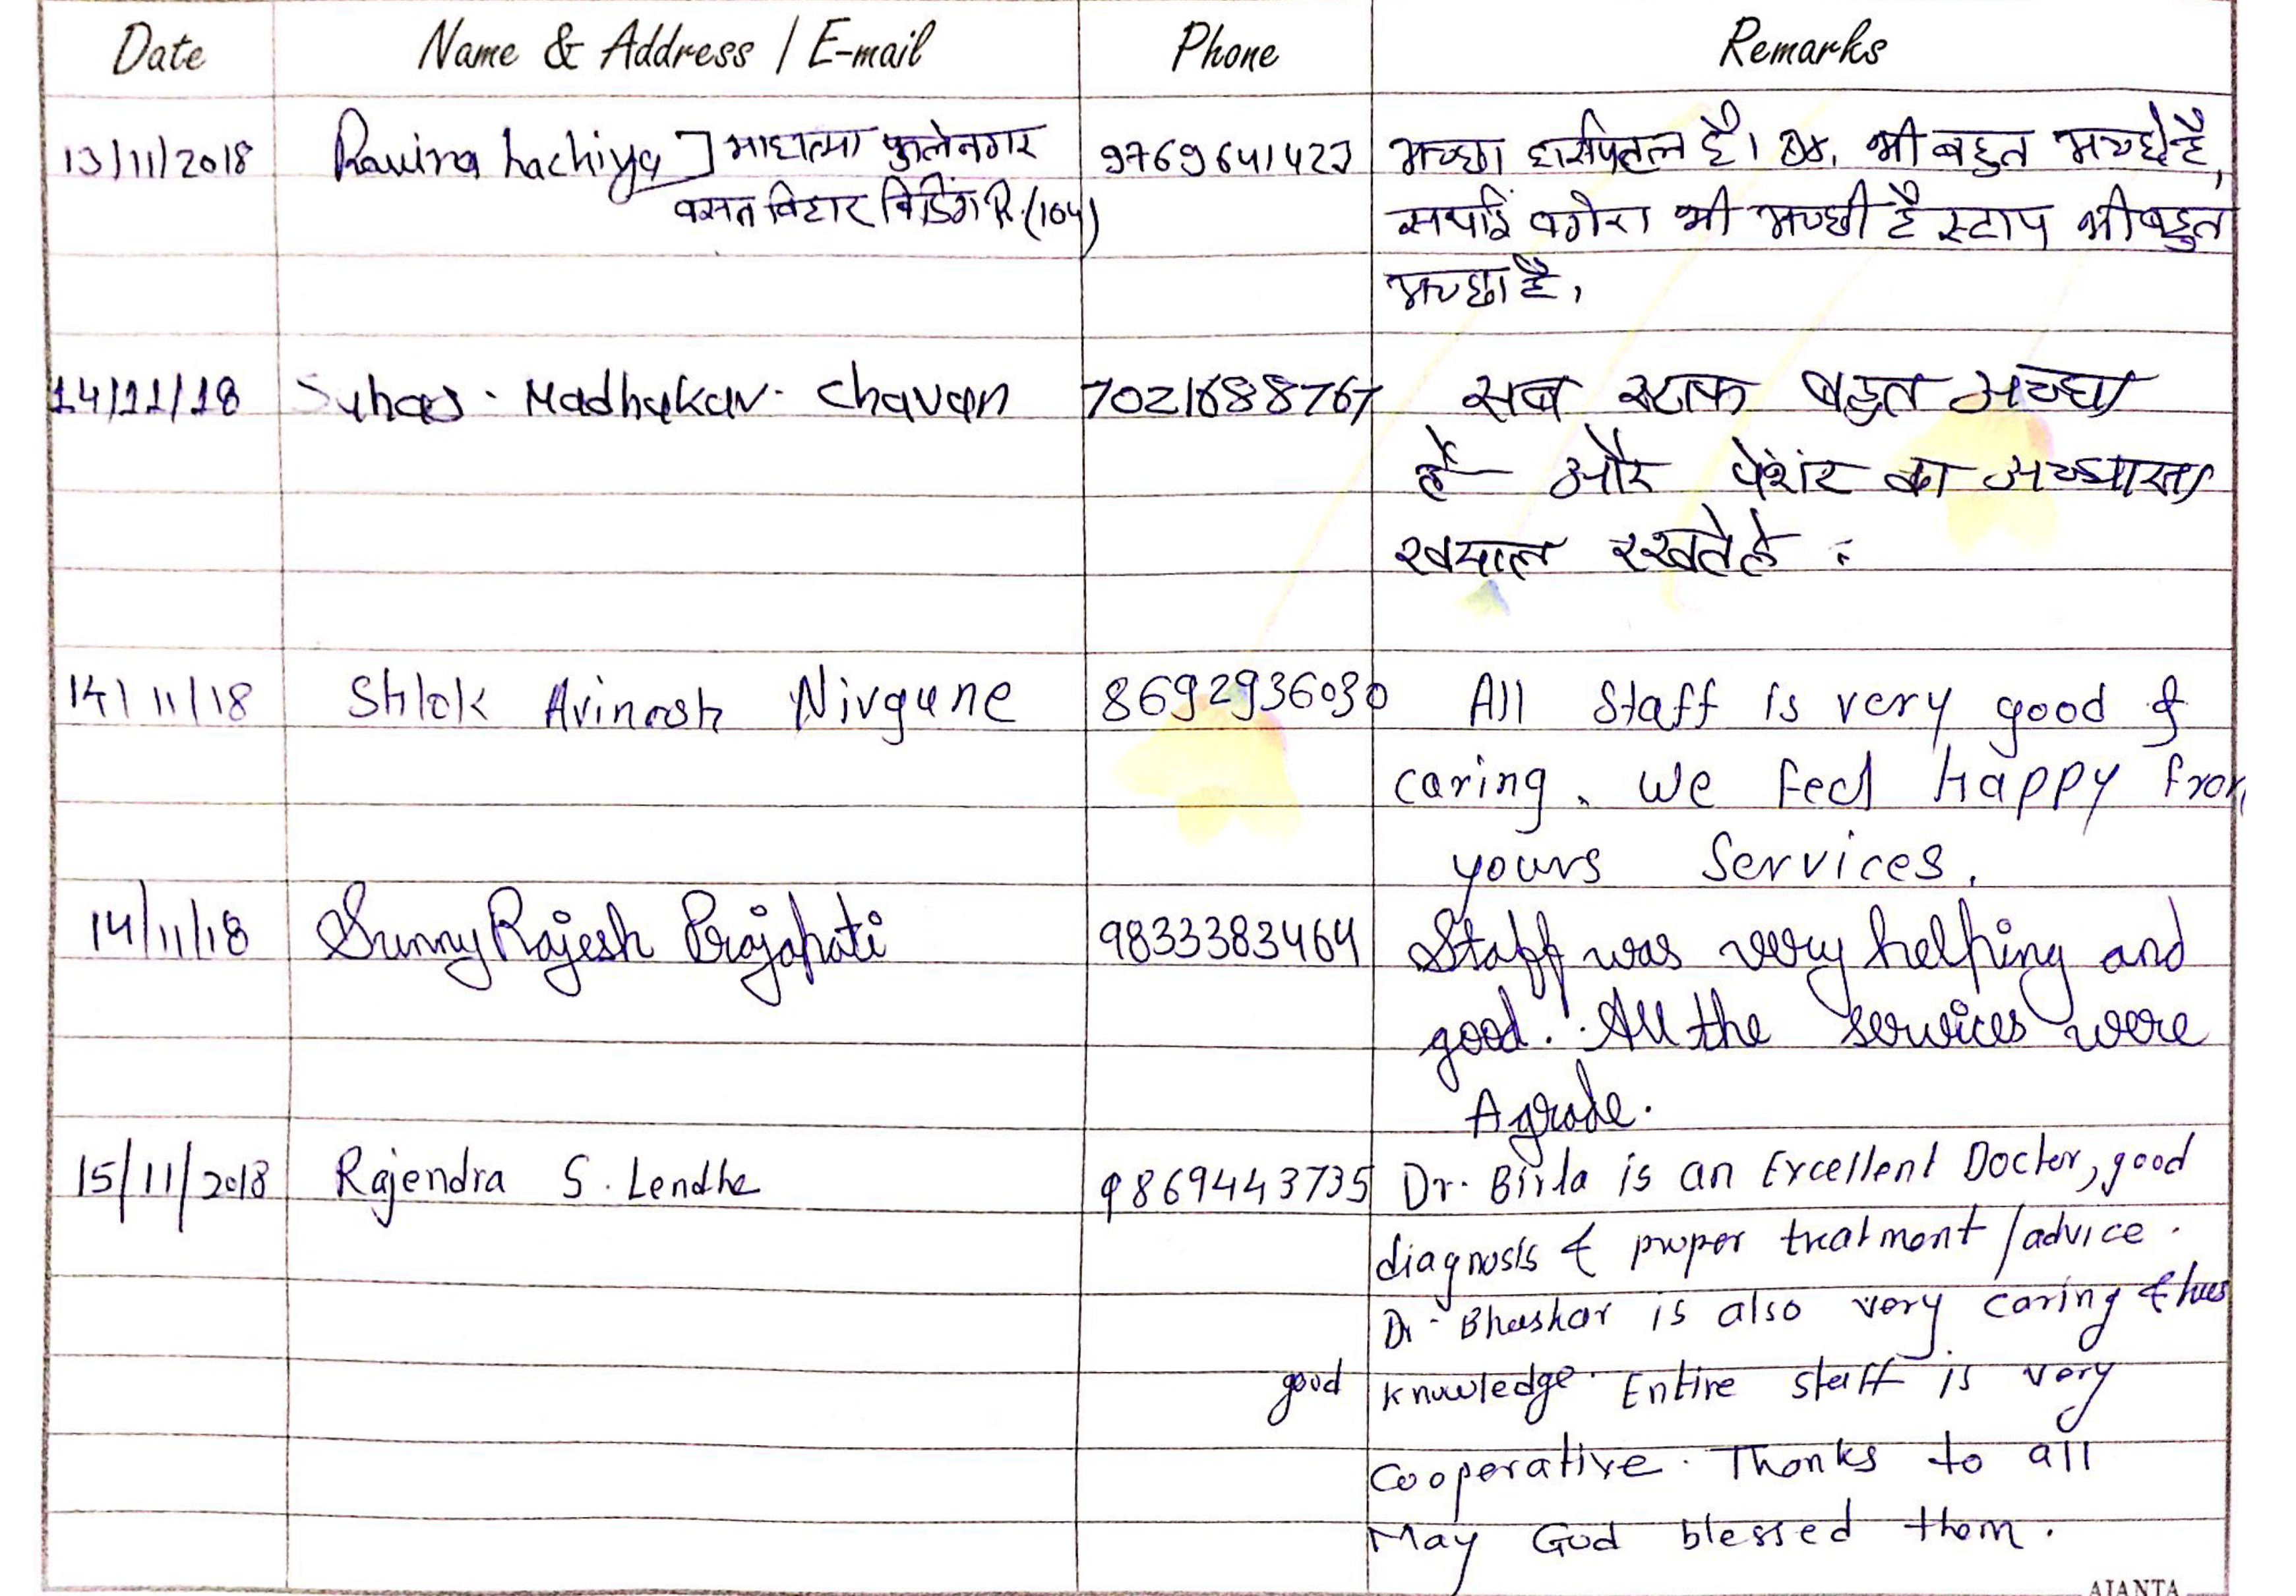 Date Name & Address / E-mail Phone Remarks
13/11/2018 Ravina hachiya ] माहात्मा फुलेनगर 9769641422 अच्छा हास्पिटल है। Dr. भी बहुत अच्छे है,
वसत विहार बिडिंग R.(104) सफाई वगेरा भी अच्छी है स्टाप भी बहुत
अच्छा है,
14/11/18 Suhas. Madhukar. Chavan 7021688767 सब स्टाफ बहुत अच्छा
है और पेशंट का
खयाल रखते है
14/11/18 Shlok Avinash Nivgune 8692936030 All Staff is very good &
caring. We feel happy from
yours Services.
14/11/18 Sunny Rajesh Prajapati 9833383464 Staff was very helping and
good. All the services were
A grade.
15/11/2018 Rajendra S. Lendhe 9869443735 Dr. Birla is an Excellent Doctor, good
diagnosis & proper treatment /advice.
Dr. Bhashar is also very caring & has
good knowledge. Entire staff is very
Cooperative. Thanks to all
May God blessed them.
AJANTA